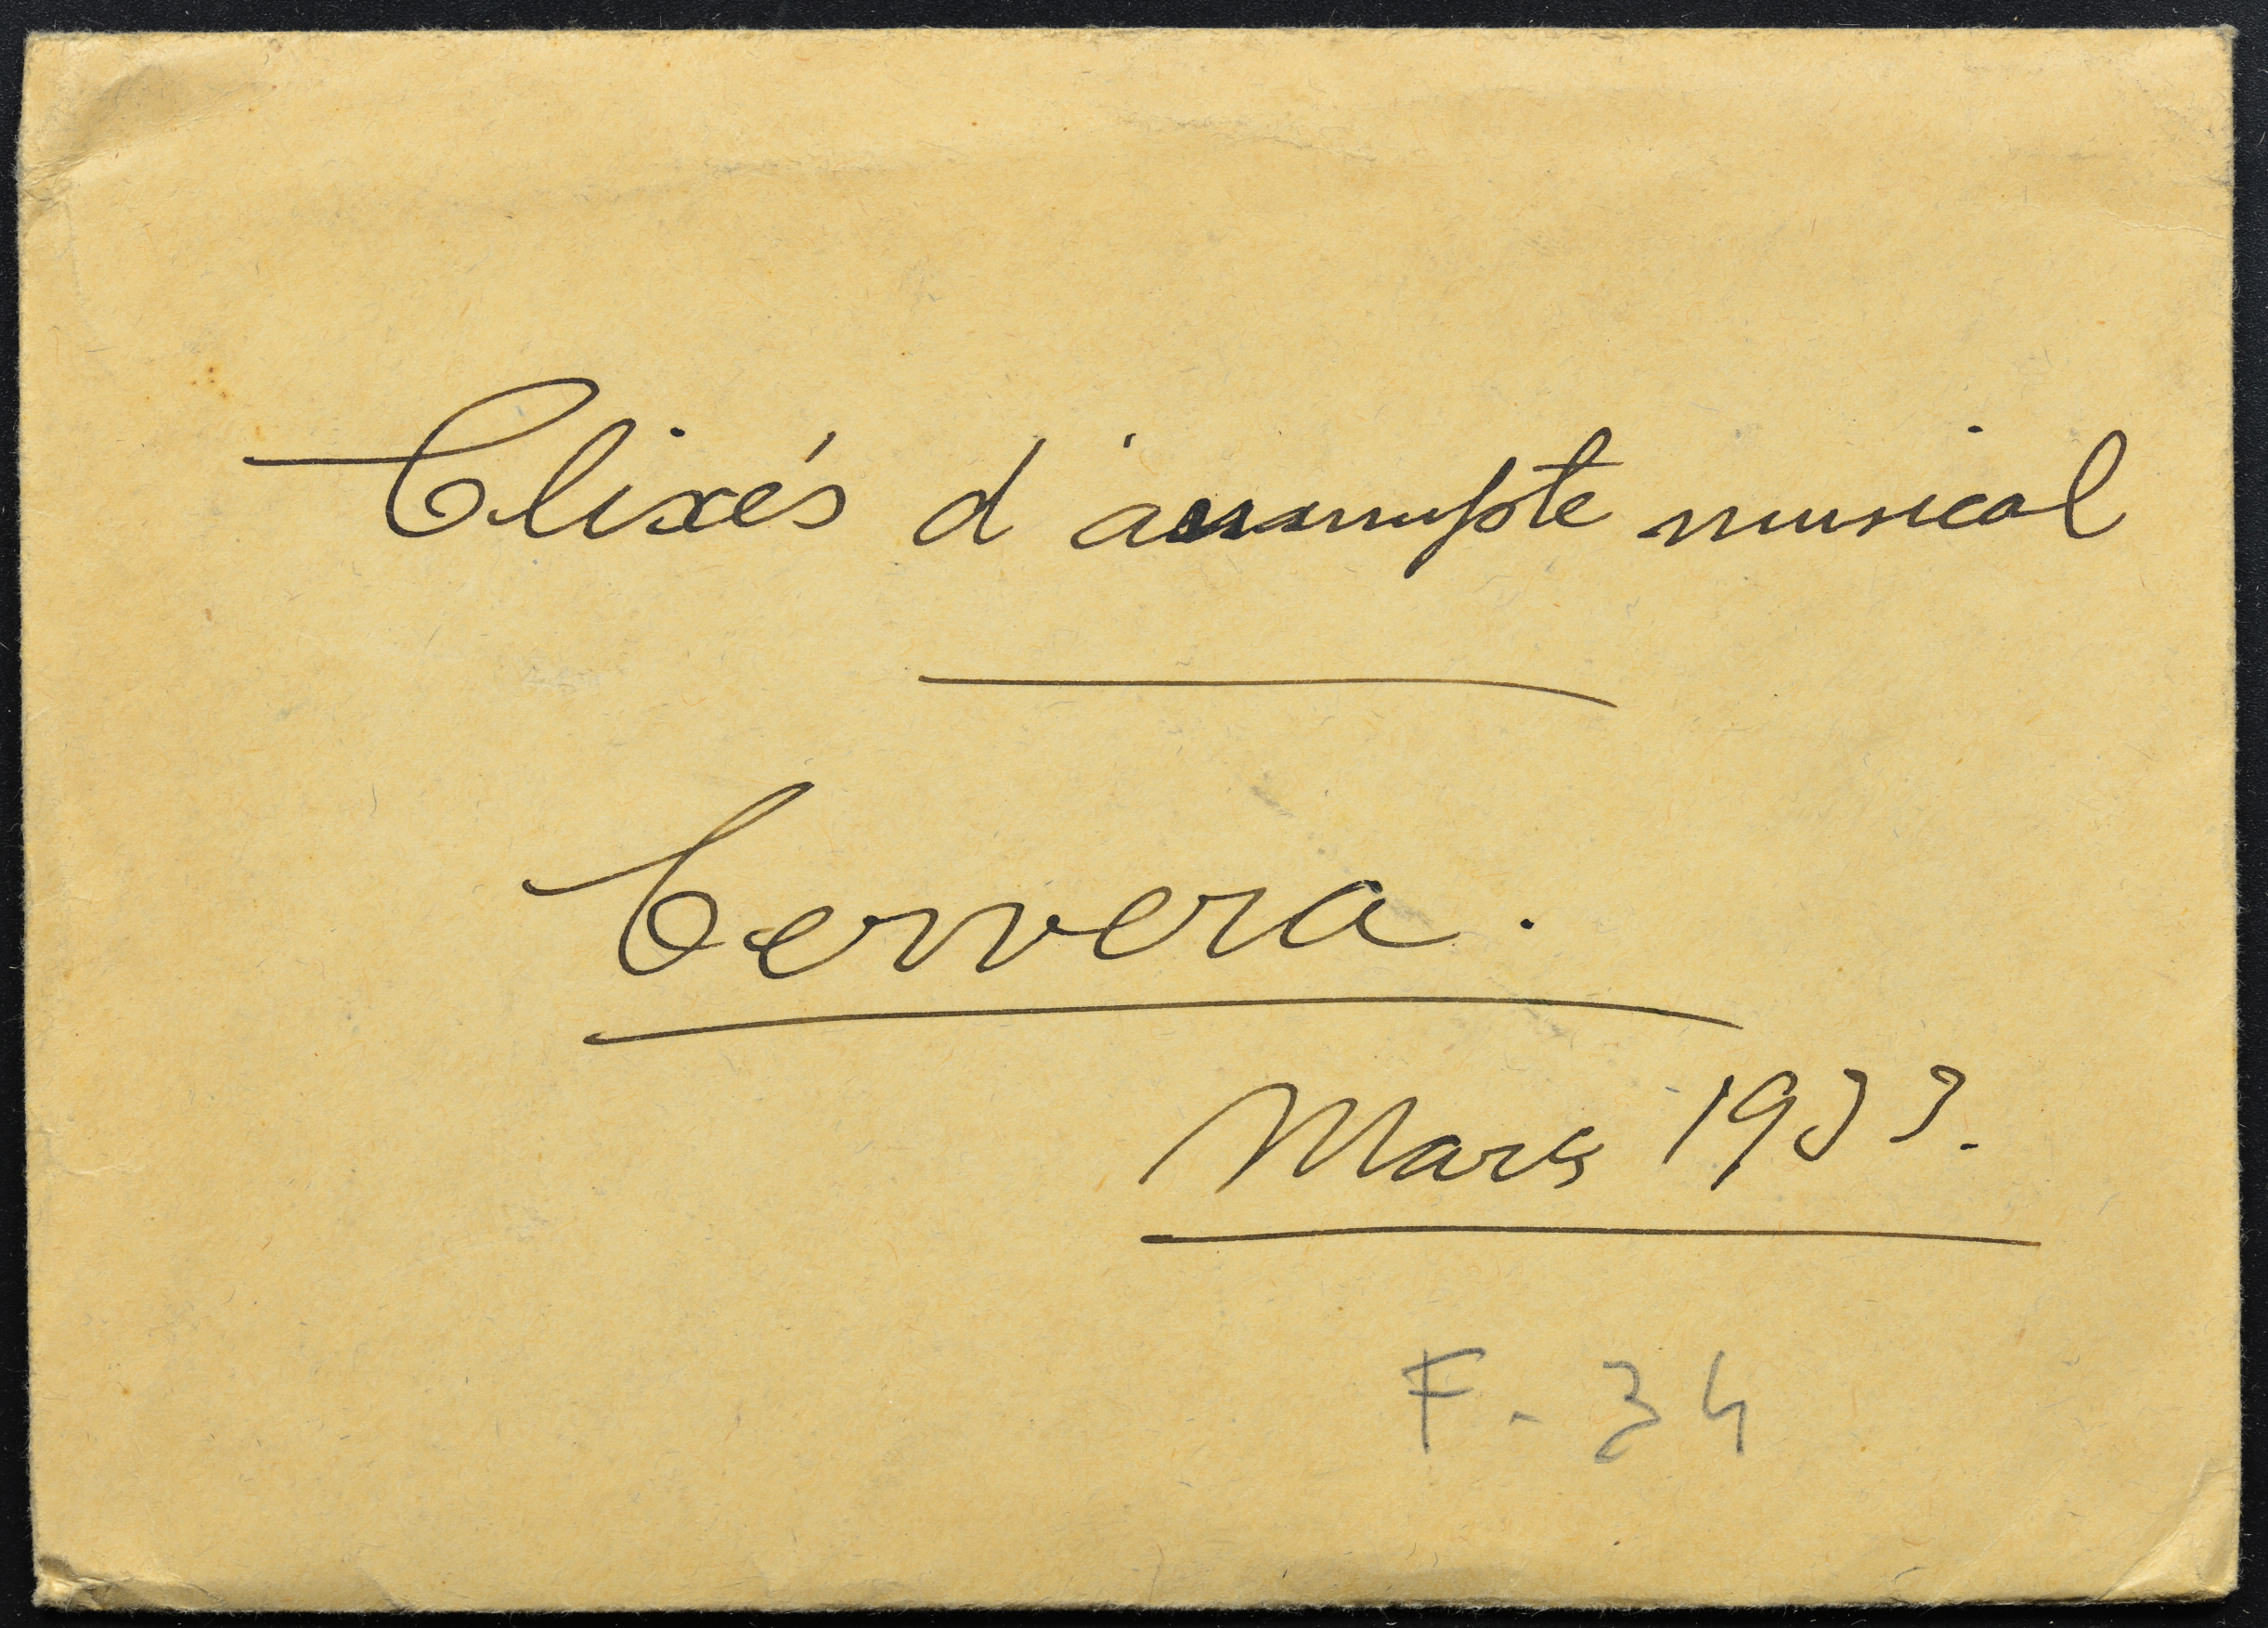 Clixés d'assumpte musical
Cervera.
Març 1933.
F-34